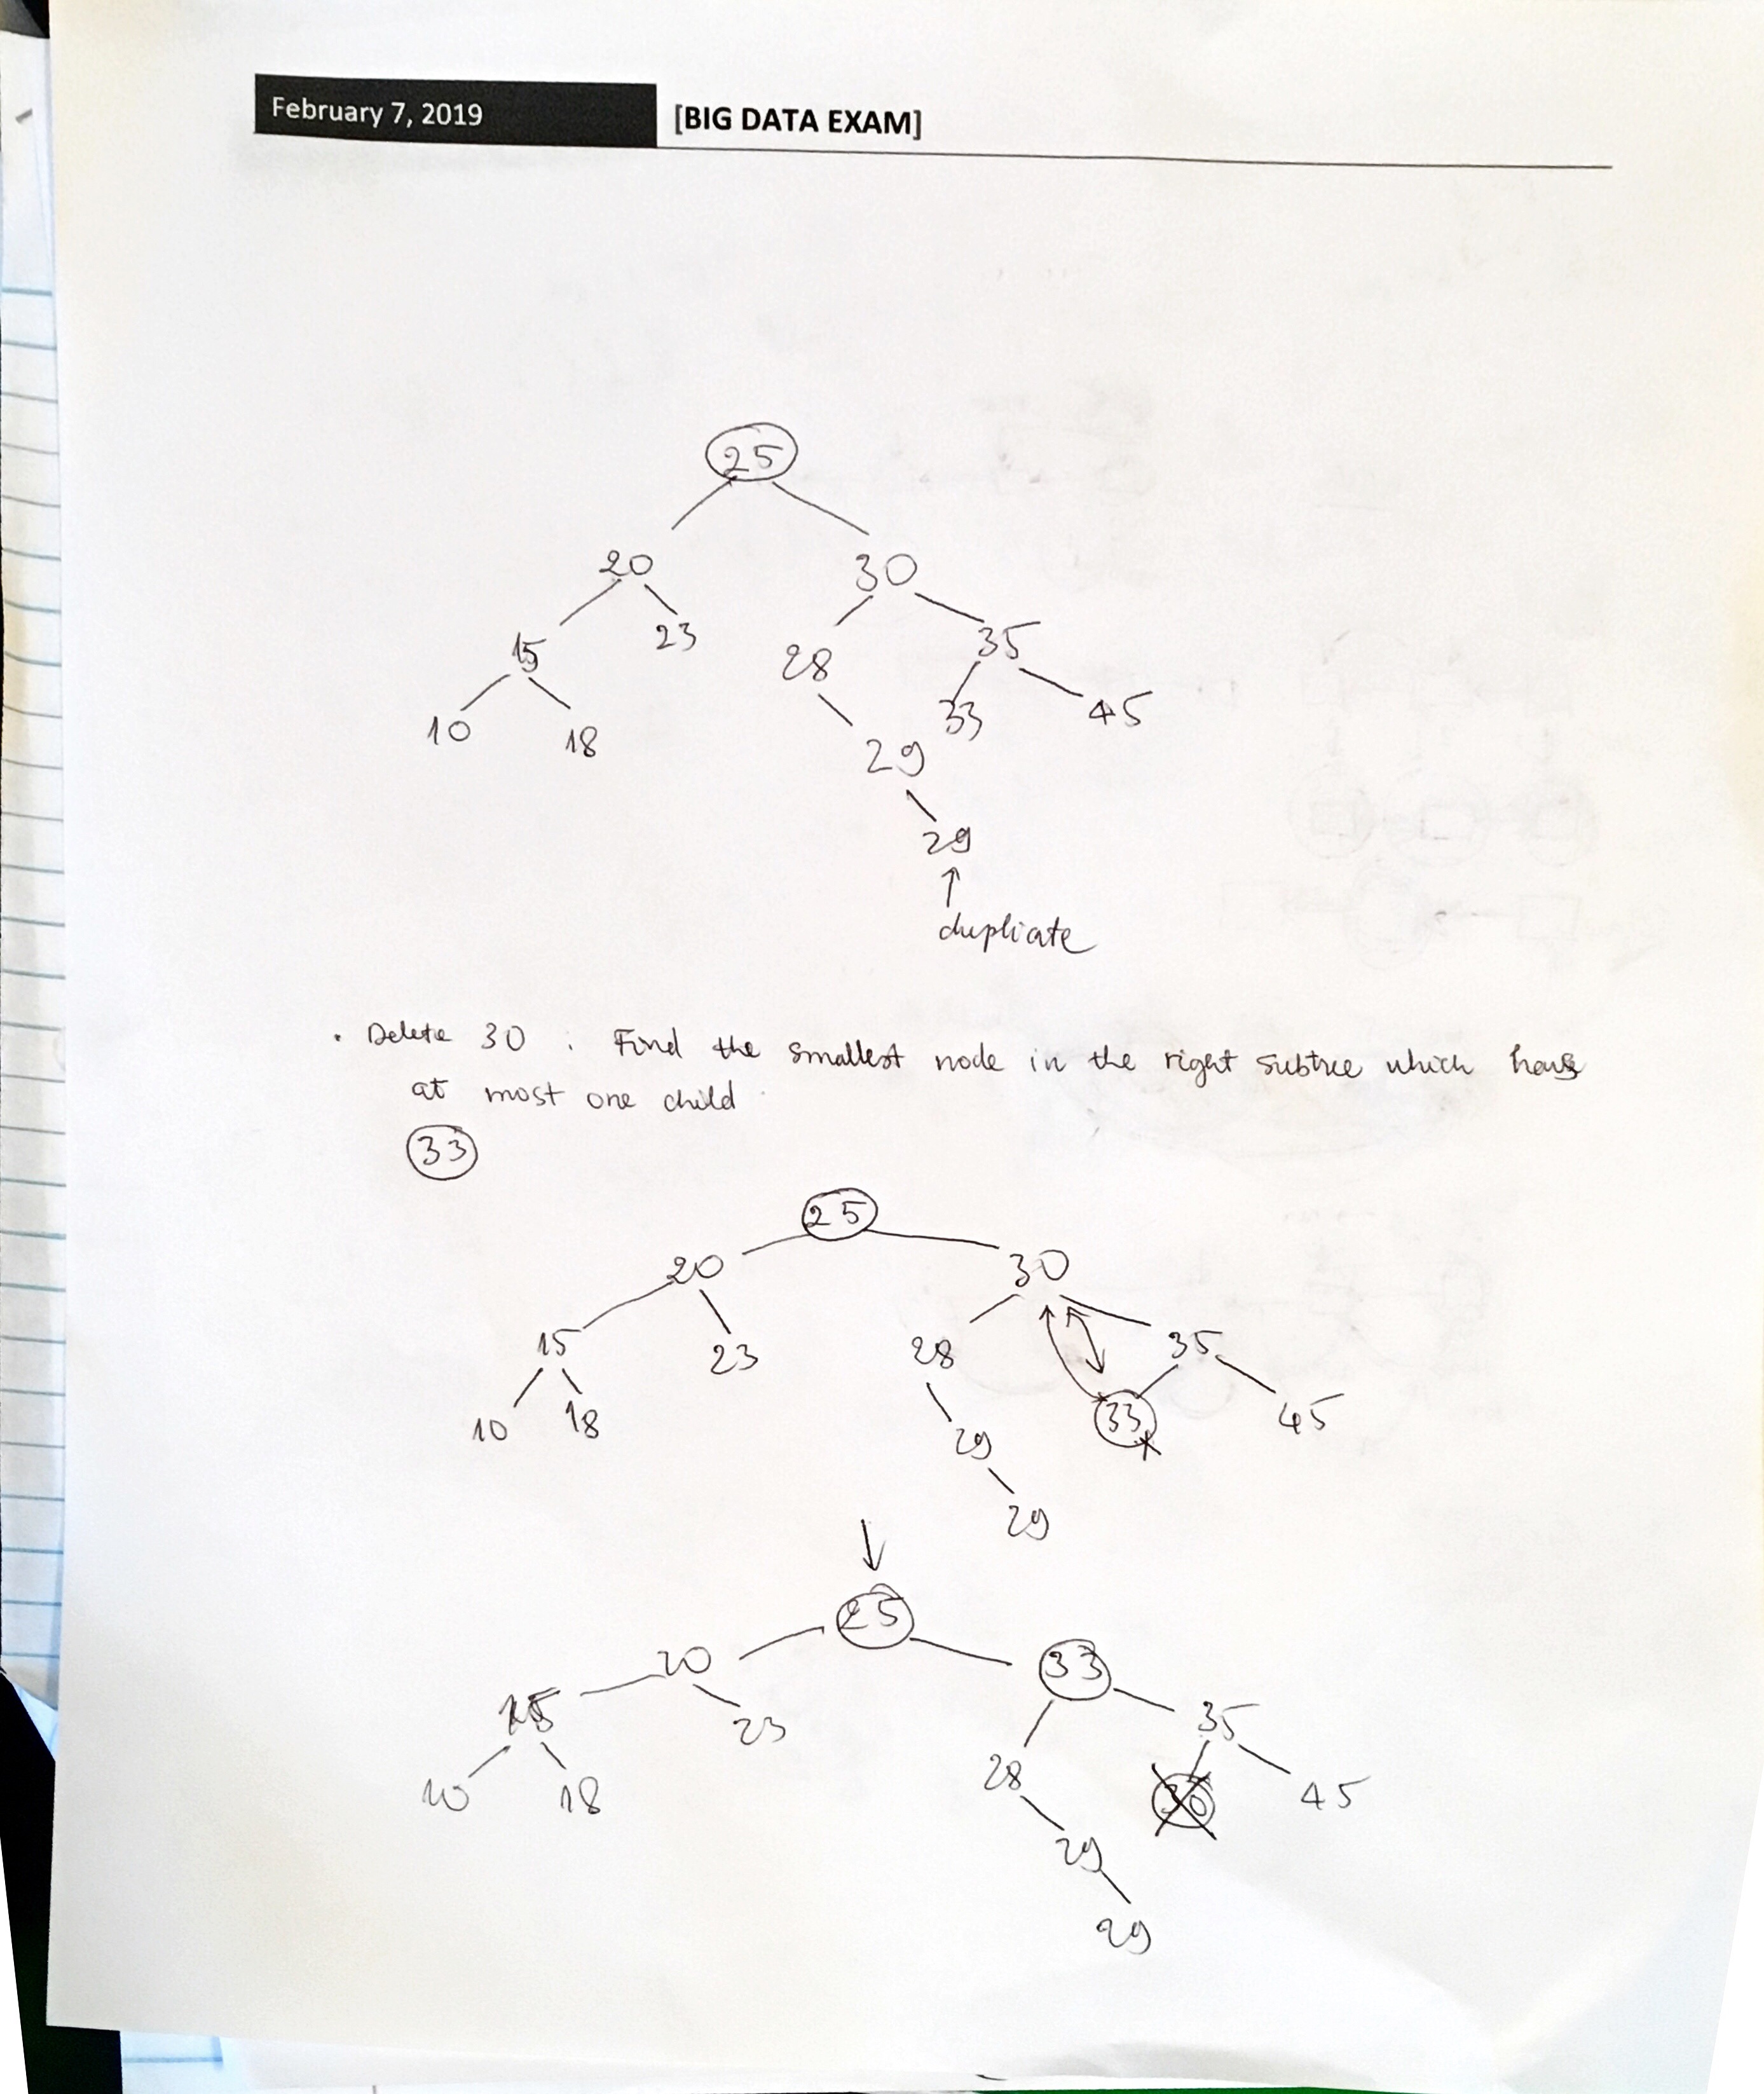 February 7, 2019 [BIG DATA EXAM]
25
20 30
15 23 28 35
10 18 29 33 45
29
↑
dupliate
• Delete 30 : Find the smallest node in the right subtree which has
at most one child
33
25
20 30
15 23 28 35
10 18 29 33 45
29
↓
25
20 33
15 23 28 35
10 18 29 30 45
29